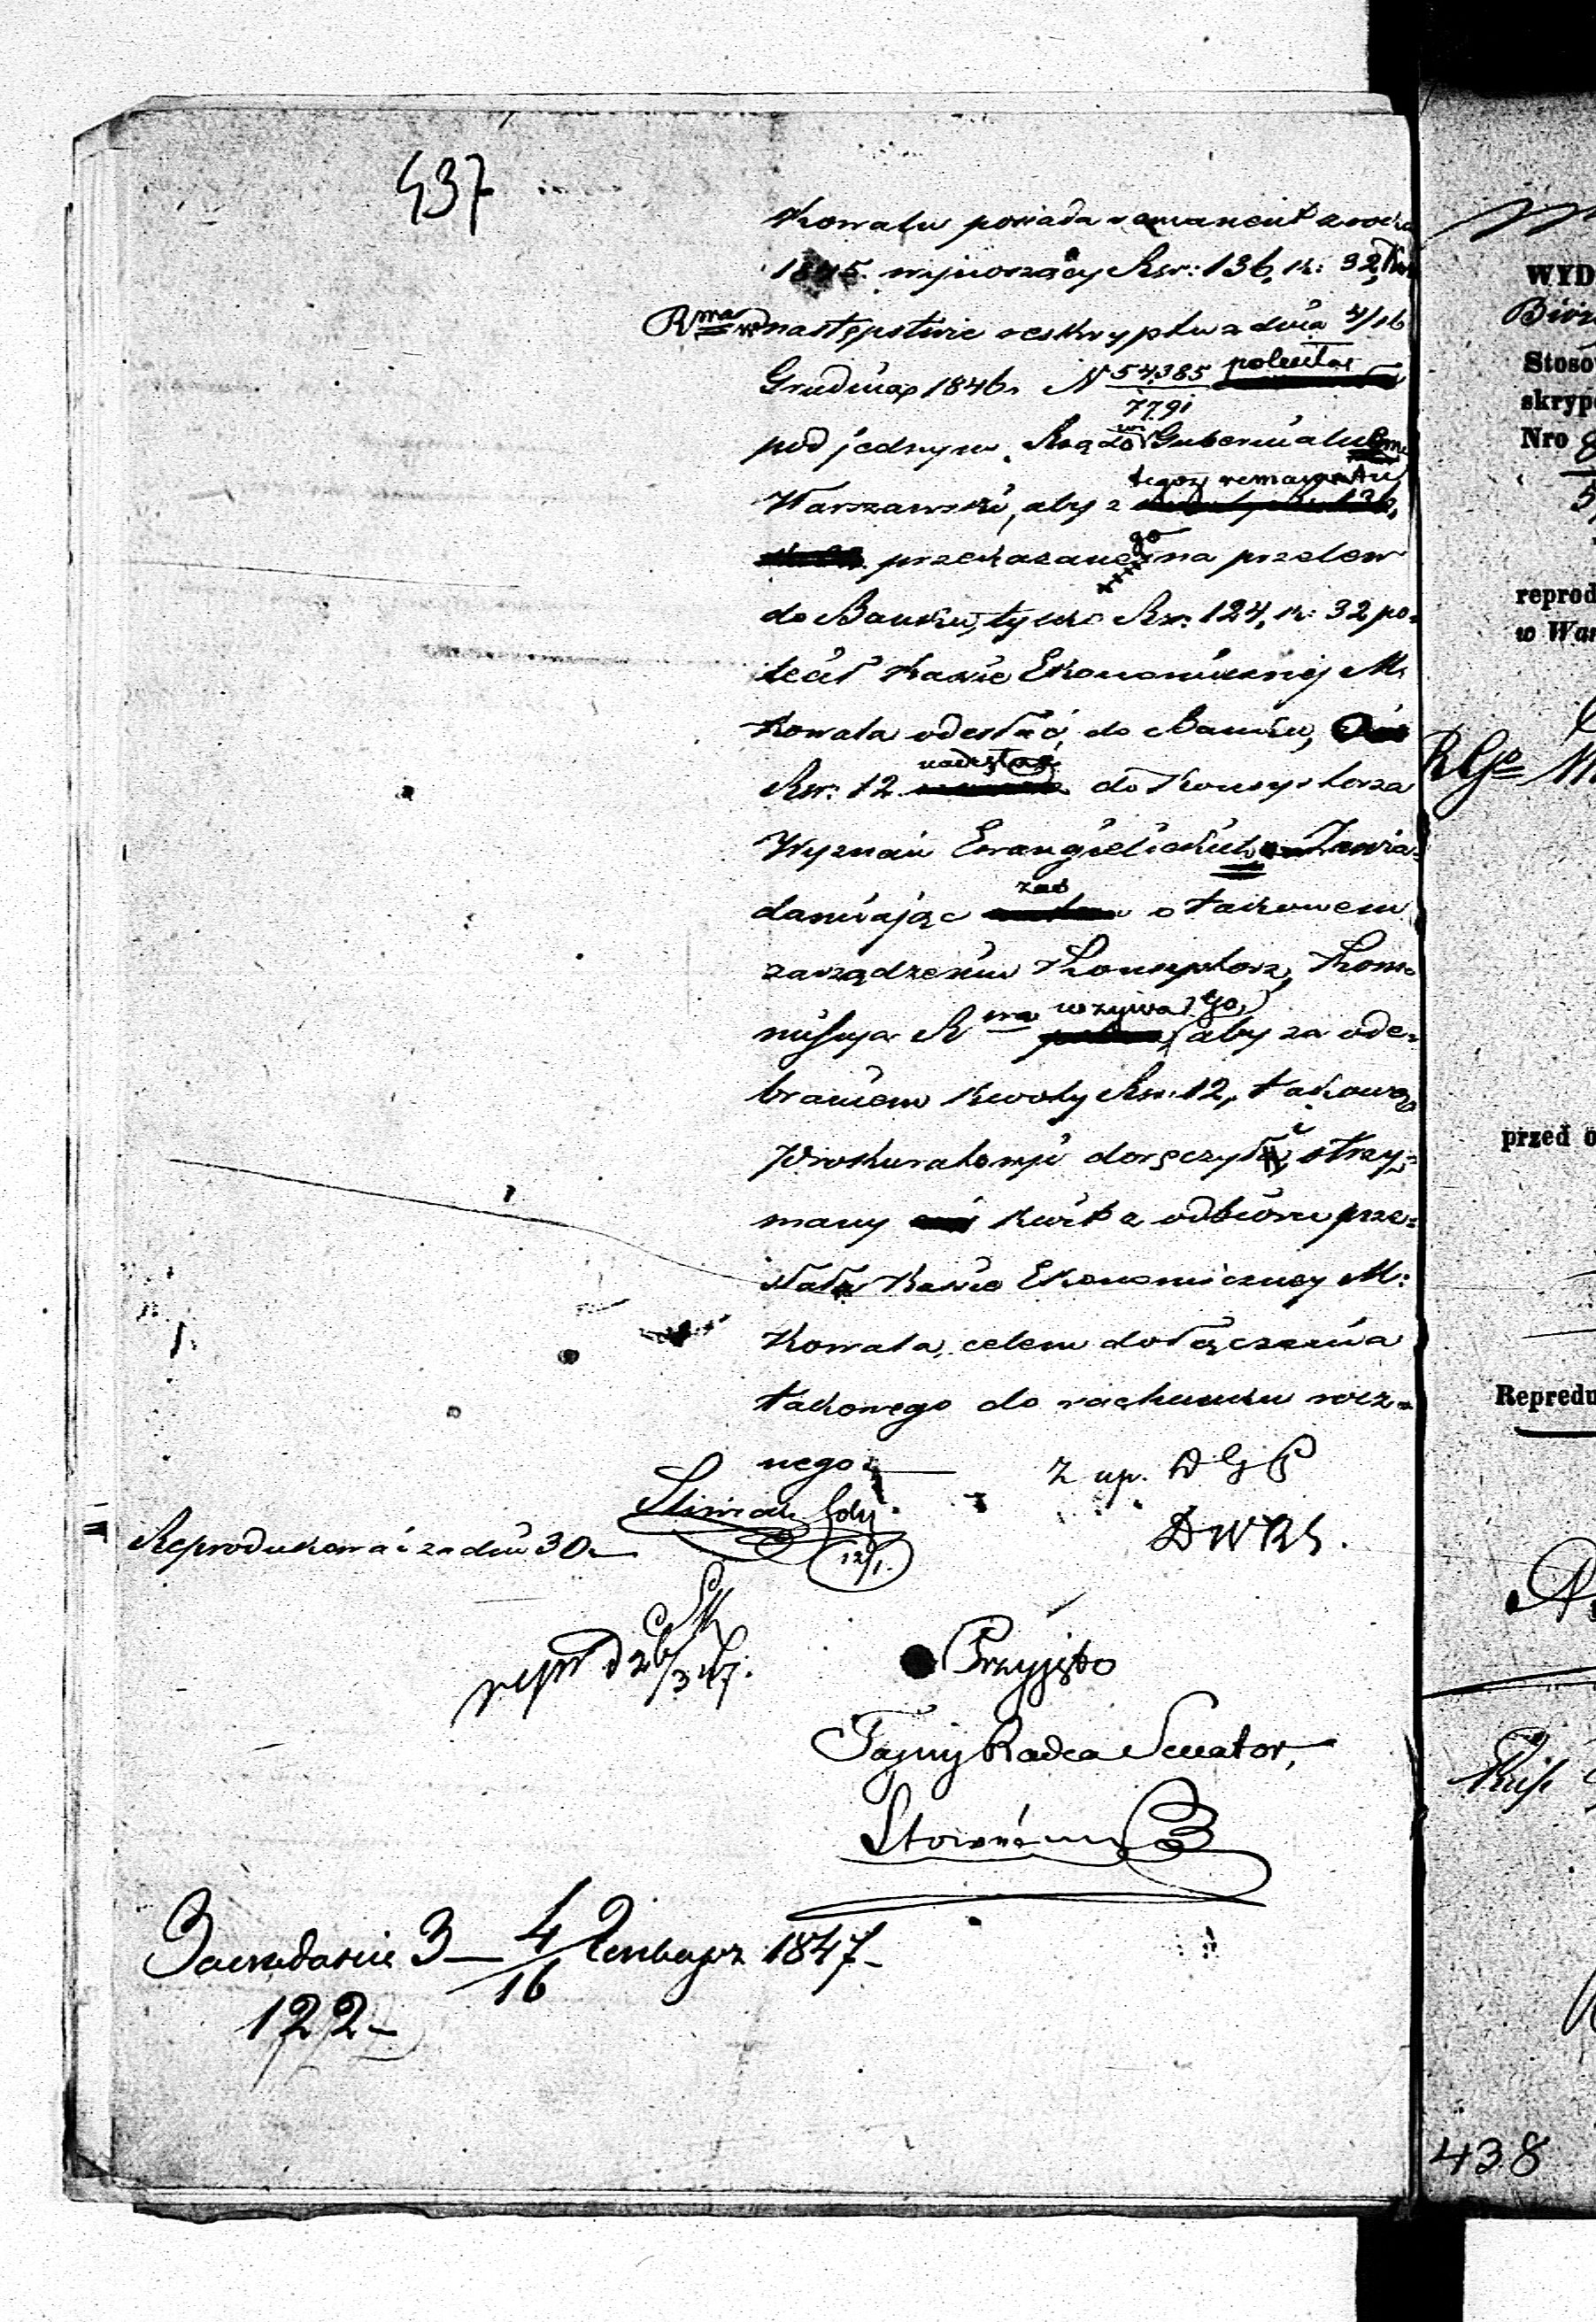 437
Kowalu posiada remanent z roku
1845. wynoszący Rsr: 136, k: 32,
Rma w następstwie reskryptu z dnia 4/16
Grudnia 1846 r. N 54385/7791 poleciła
pod jednym Rządowi Gubernialnemu
Warszawski, aby z tegoż remanentu
przekazanego na przelew
do Banku, tylko Rsr. 124, k: 32 po=
lecił Kasie Ekonomicznej M.
Kowala odesłać do Banku,
Rsr: 12 nadesłać do Konsystorza
Wyznań Ewangielickich Zawia=
damiając zaś o takowem
zarządzeniu Konsystorz, Kom=
missya R ma wzywa Go, aby za ode=
braniem kwoty Rsr. 12, takową
Prokuratoryi doręczył i otrzy=
many kwit z odbioru prze=
słał Kasie Ekonomicznej M:
Kowala, celem dołączenia
takowego do rachunku rocz=
nego.
Z up. D G P
12/1.
Reprodukować za dni 30
D W R S.
repr d 26/3 47.
Przyjęto
Tajny Radca Senator,
3 4/16 1847
122
WYD
Stoso
skryp
Nro 8
5
reprod
w War
RGo
przed o
Repredu
438